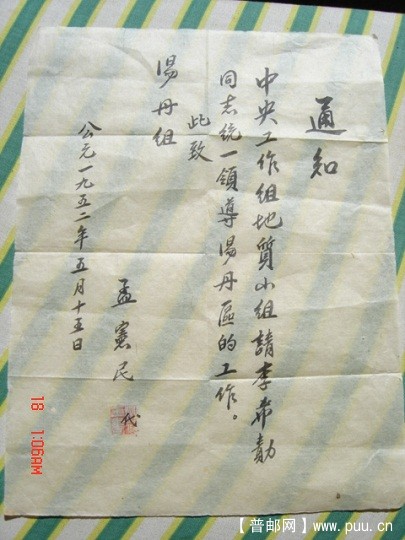 通知
中央工作组地質小组請李希勣
同志统一領導湯丹區的工作。
此致
湯丹组
孟憲民
代
公元一九五二年五月十五日
18 1:06AM
【普邮网】www.puu.cn